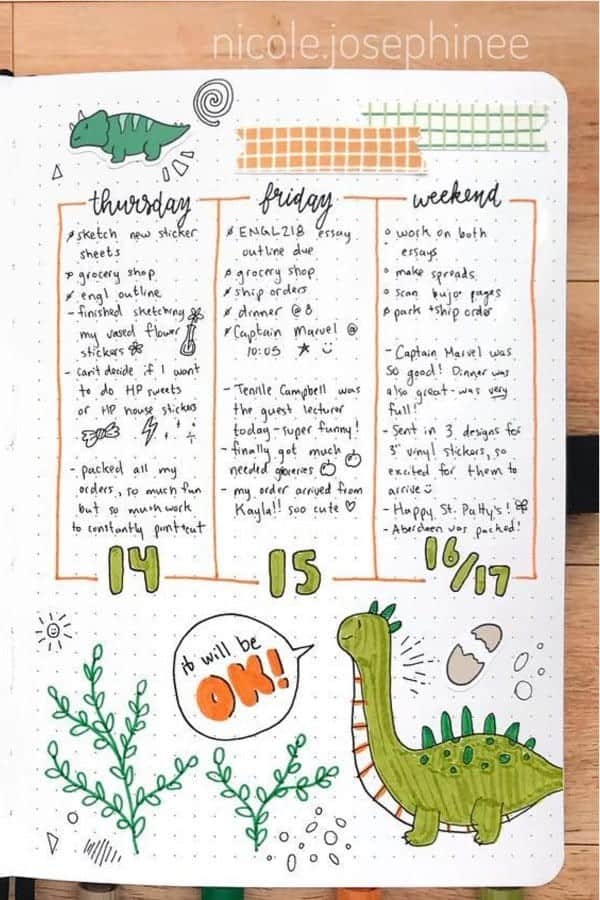 nicole.josephinee
thursday
sketch new sticker
sheets
grocery shop
engl outline
- finished sketching
my vased flower
stickers
- can't decide if I want
to do HP sweets
or HP house stickers
- packed all my
orders, so much fun
but so much work
to constantly print + cut
14
friday
ENGL218 essay
outline due
grocery shop
ship orders
dinner @ 8
Captain Marvel @
10:05
- Tenille Campbell was
the guest lecturer
today - super funny!
- finally got much
needed groceries
- my order arrived from
Kayla!! soo cute ♡
15
weekend
work on both
essays
make spreads
scan bujo pages
pack + ship order
- Captain Marvel was
so good! Dinner was
also great - was very
full!
- Sent in 3 designs for
3" vinyl stickers, so
excited for them to
arrive
- Happy St. Patty's!
- Aberdeen was packed!
16/17
it will be
OK!